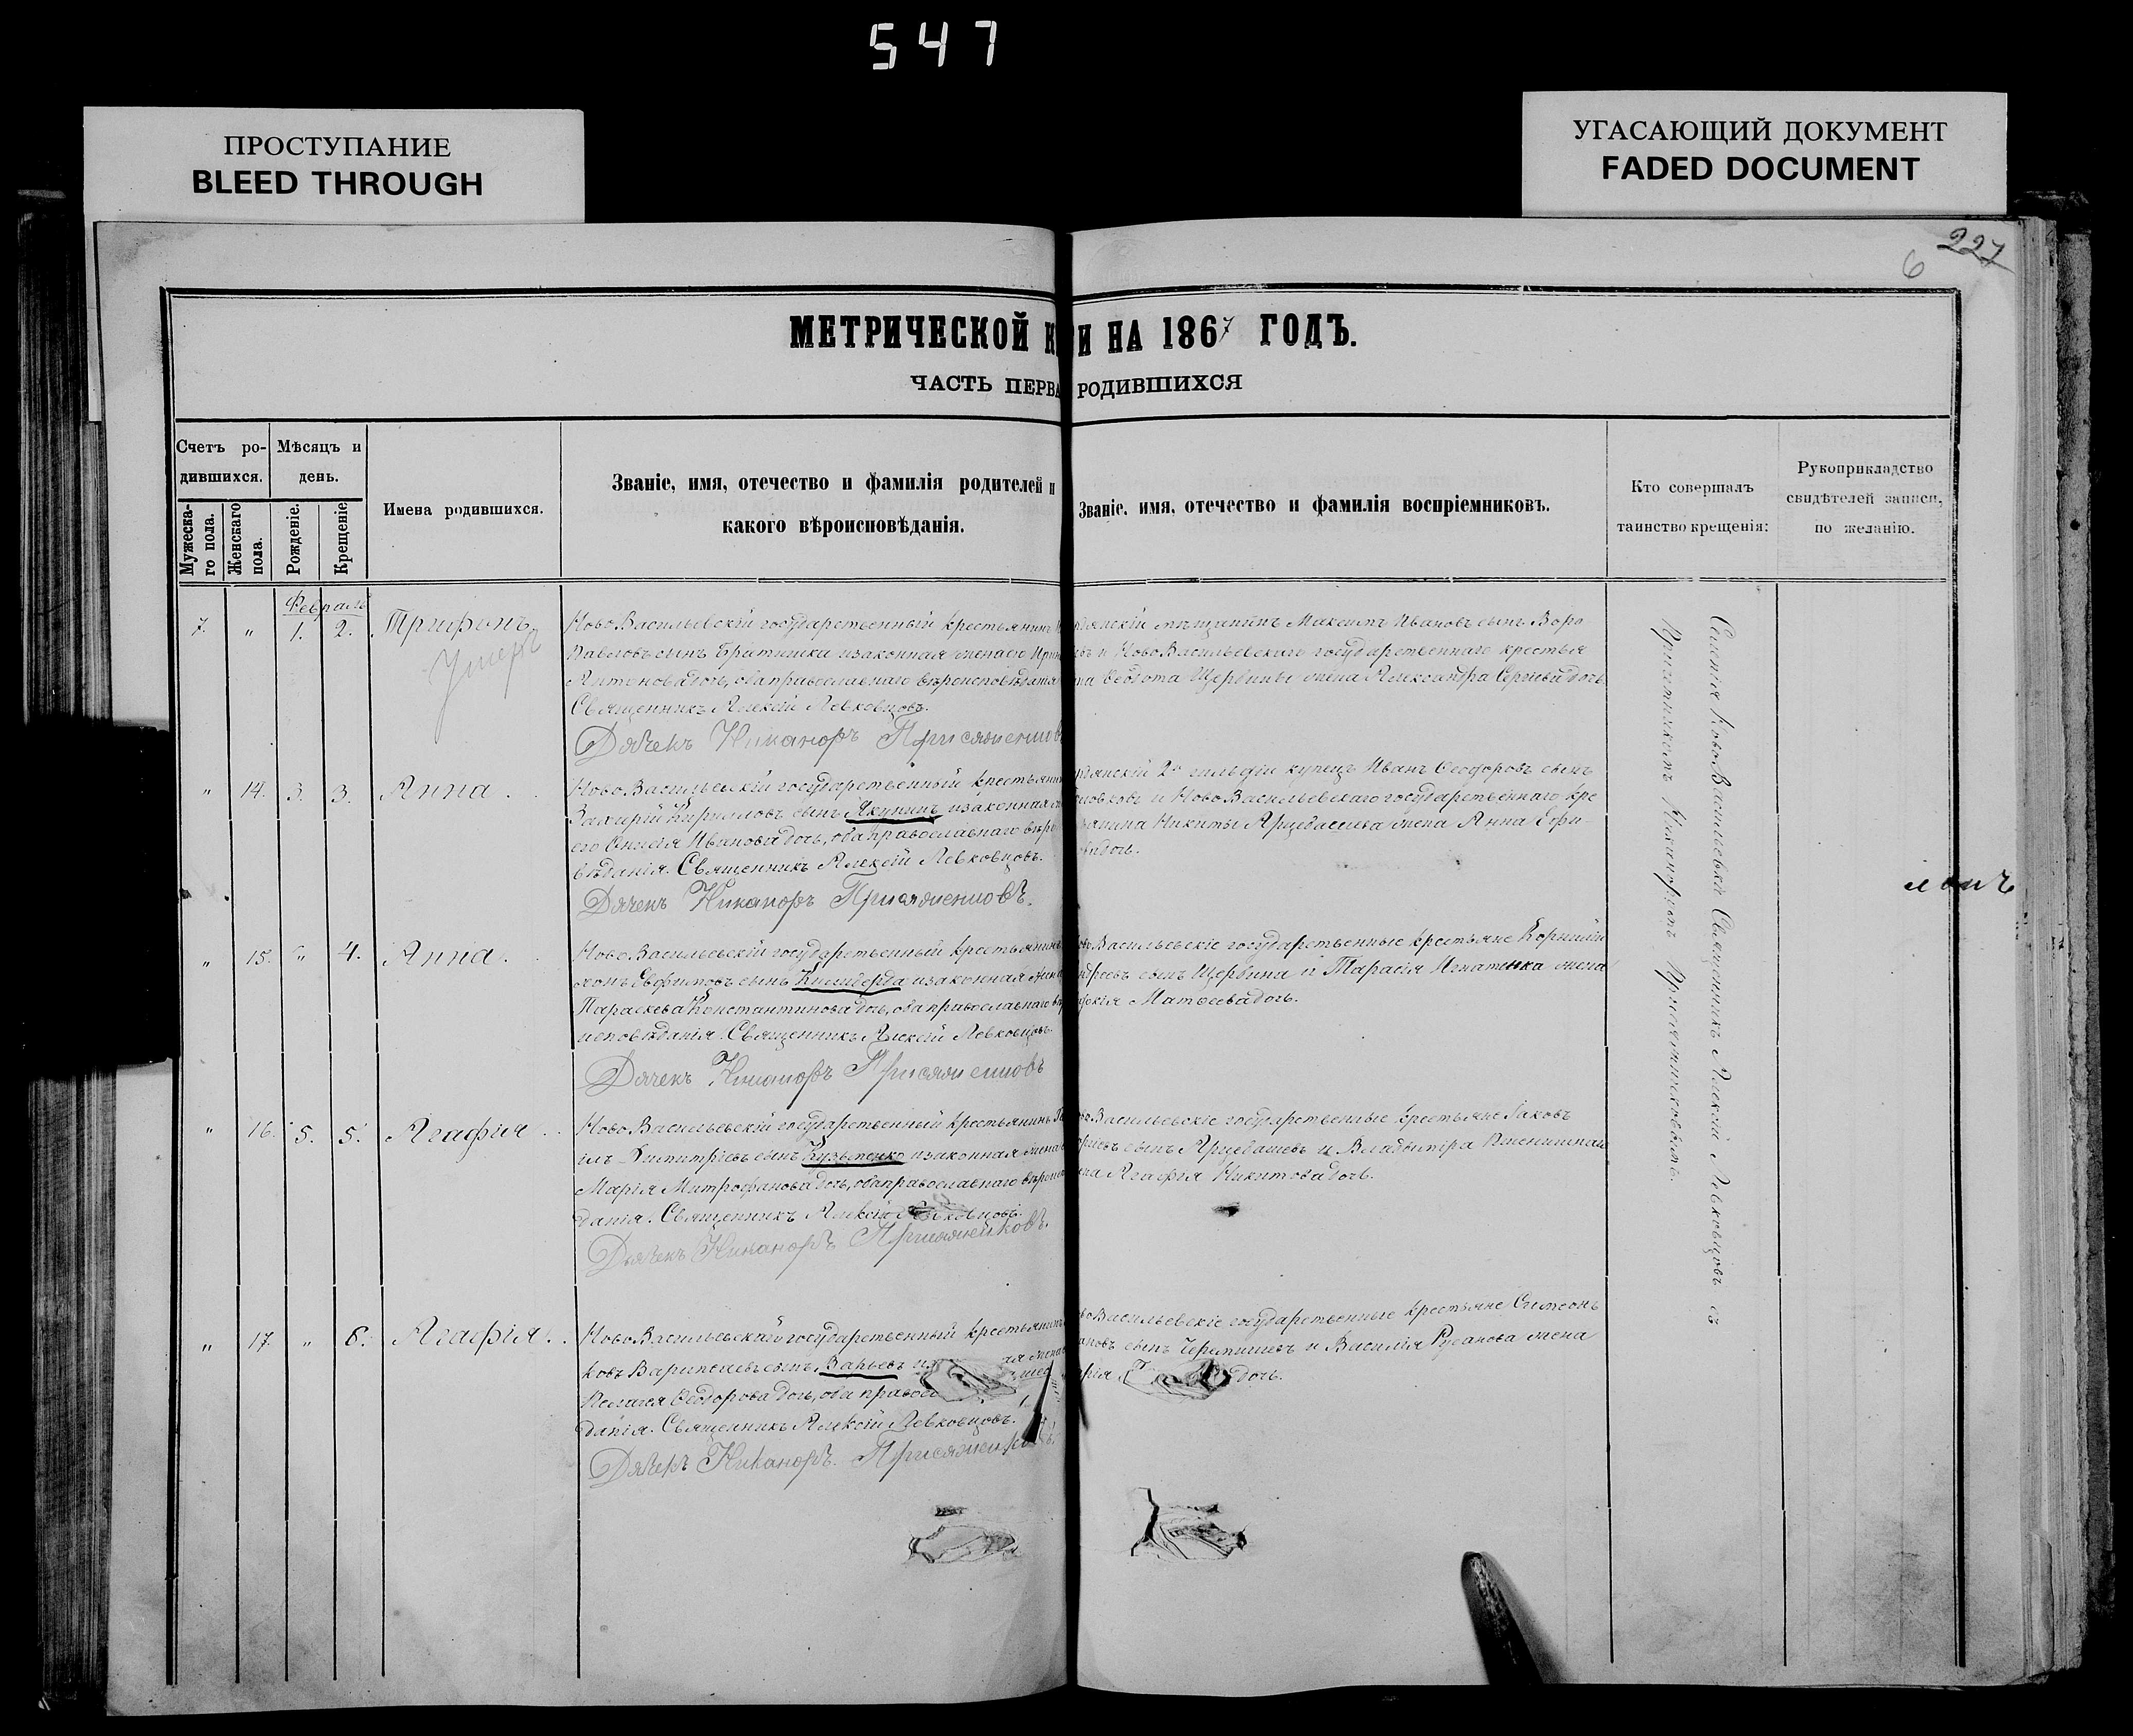 547
ПРОСТУПАНИЕ
BLEED THROUGH
УГАСАЮЩИЙ ДОКУМЕНТ
FADED DOCUMENT
227
6
МЕТРИЧЕСКОЙ К И НА 1867 ГОДЪ.
ЧАСТЬ ПЕРВА РОДИВШИХСЯ
Счетъ ро-
дившихся.
Мужеска-
го пола.
Женскаго
пола.
Мѣсяцъ и
день.
Рожденіе.
Крещеніе
Имена родившихся.
Званіе, имя, отечество и фамилія родителей и
какого вѣроисповѣданія.
Званіе, имя, отечество и фамилія воспріемниковъ.
Кто совершалъ
таинство крещенія:
Рукоприкладство
свидѣтелей записи,
по желанію.
Февраль
7. " 1. 2. Трифонъ.
Умеръ
НовоВасильевскій государственный крестьянинъ
Павловъ сынъ Братишка и законная жена его Ирин
Антонова дочь, оба православнаго вѣроисповѣданія
Священникъ Алексій Левковцовъ.
Дячекъ Никаноръ
мѣщанинъ Максимъ Ивановъ сынъ Воро
въ и НовоВасильевскаго государственнаго крестья
на Ѳедота Щербины жена Александра Сергіева дочь
" 14. 3. 3. Анна.
НовоВасильевскій государственный крестьянин
Захарій Кирилловъ сынъ Якунинъ и законная ж
его Иванова дочь, оба православнаго вѣро
вѣданія. Священникъ Алексій Левковцовъ.
Дячекъ Никаноръ
рдянскій 2й гильдіи купецъ Иванъ Ѳеодоровъ сынъ
и НовоВасильевскаго государственнаго кре
янина Никиты Арцебашева жена Анна Ефи-
ова дочь.
" 15. " 4. Анна.
НовоВасильевскій государственный крестьянинъ
Евфимовъ сынъ и законная жена
Параскева Константинова дочь, оба православнаго вѣр
исповѣданія. Священникъ Алексій Левковцовъ.
Дячекъ Никаноръ
ово Васильевскіе государственные крестьяне Корнилій
ндреевъ сынъ Щербина и Тарасія Игнатенка жена
Матѳеева дочь.
" 16. 5. 5. Агафія
НовоВасильевскій государственный крестьянинъ
илъ Димитріевъ сынъ Кузьменко и законная жена
Марія Митрофанова дочь, оба православнаго вѣроисп
данія. Священникъ Алексій Левковцовъ.
Дячекъ Никаноръ
ово Васильевскіе государственные крестьяне Іаковъ
сынъ Арцебашевъ и Владиміра Пшенишнаго
на Агафія Никитова дочь.
" 17. " 6. Агафія.
НовоВасильевскій государственный крестьянинъ
ковъ сынъ Зарьевъ и ая жена
Пелагія Ѳеодорова дочь, оба правос
данія. Священникъ Алексій Левковцовъ.
Дячекъ Никаноръ
во Васильевскіе государственные крестьяне Симеонъ
ановъ сынъ Черемишевъ и Василія Русанова жена
рія дочь.
Селенія НовоВасильевки Священникъ Алексій Левковцовъ съ
Причетникомъ Никаноромъ